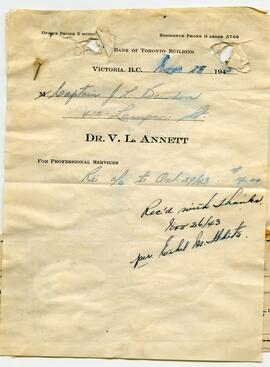 Office Phone E
Residence Phone Garden 5766
Bank of Toronto Building
Victoria, B.C. Nov 25 1943
M Captain J L
Lampson St
Dr. V. L. Annett
For Professional Services
Re a/c to Oct 29/43
Rec'd with Thanks
Nov 26/43
per Ethel M.